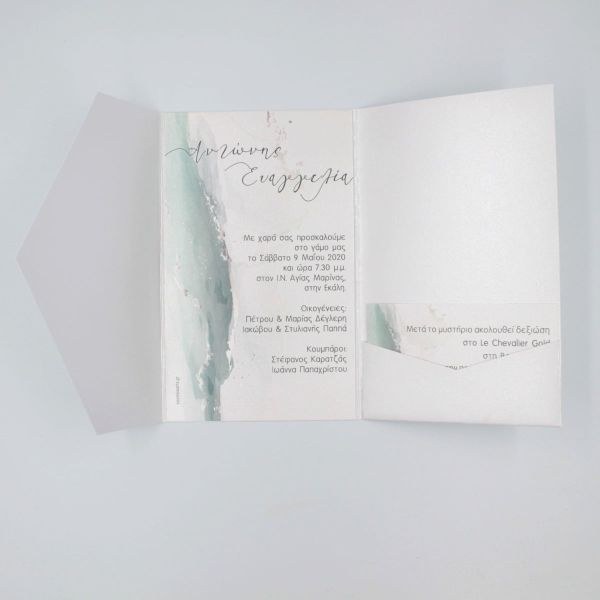 Αντώνης
Ευαγγελία
Με χαρά σας προσκαλούμε
στο γάμο μας
το Σάββατο 9 Μαΐου 2020
και ώρα 7.30 μ.μ.
στον Ι.Ν. Αγίας Μαρίνας,
στην Εκάλη.
Οικογένειες:
Πέτρου & Μαρίας Δέγλερη
Ιακώβου & Στυλιανής Παππά
Κουμπάροι:
Στέφανος Καρατζάς
Ιωάννα Παπαχρίστου
Μετά το μυστήριο ακολουθεί δεξίωση
στο Le Chevalier Gold
στη